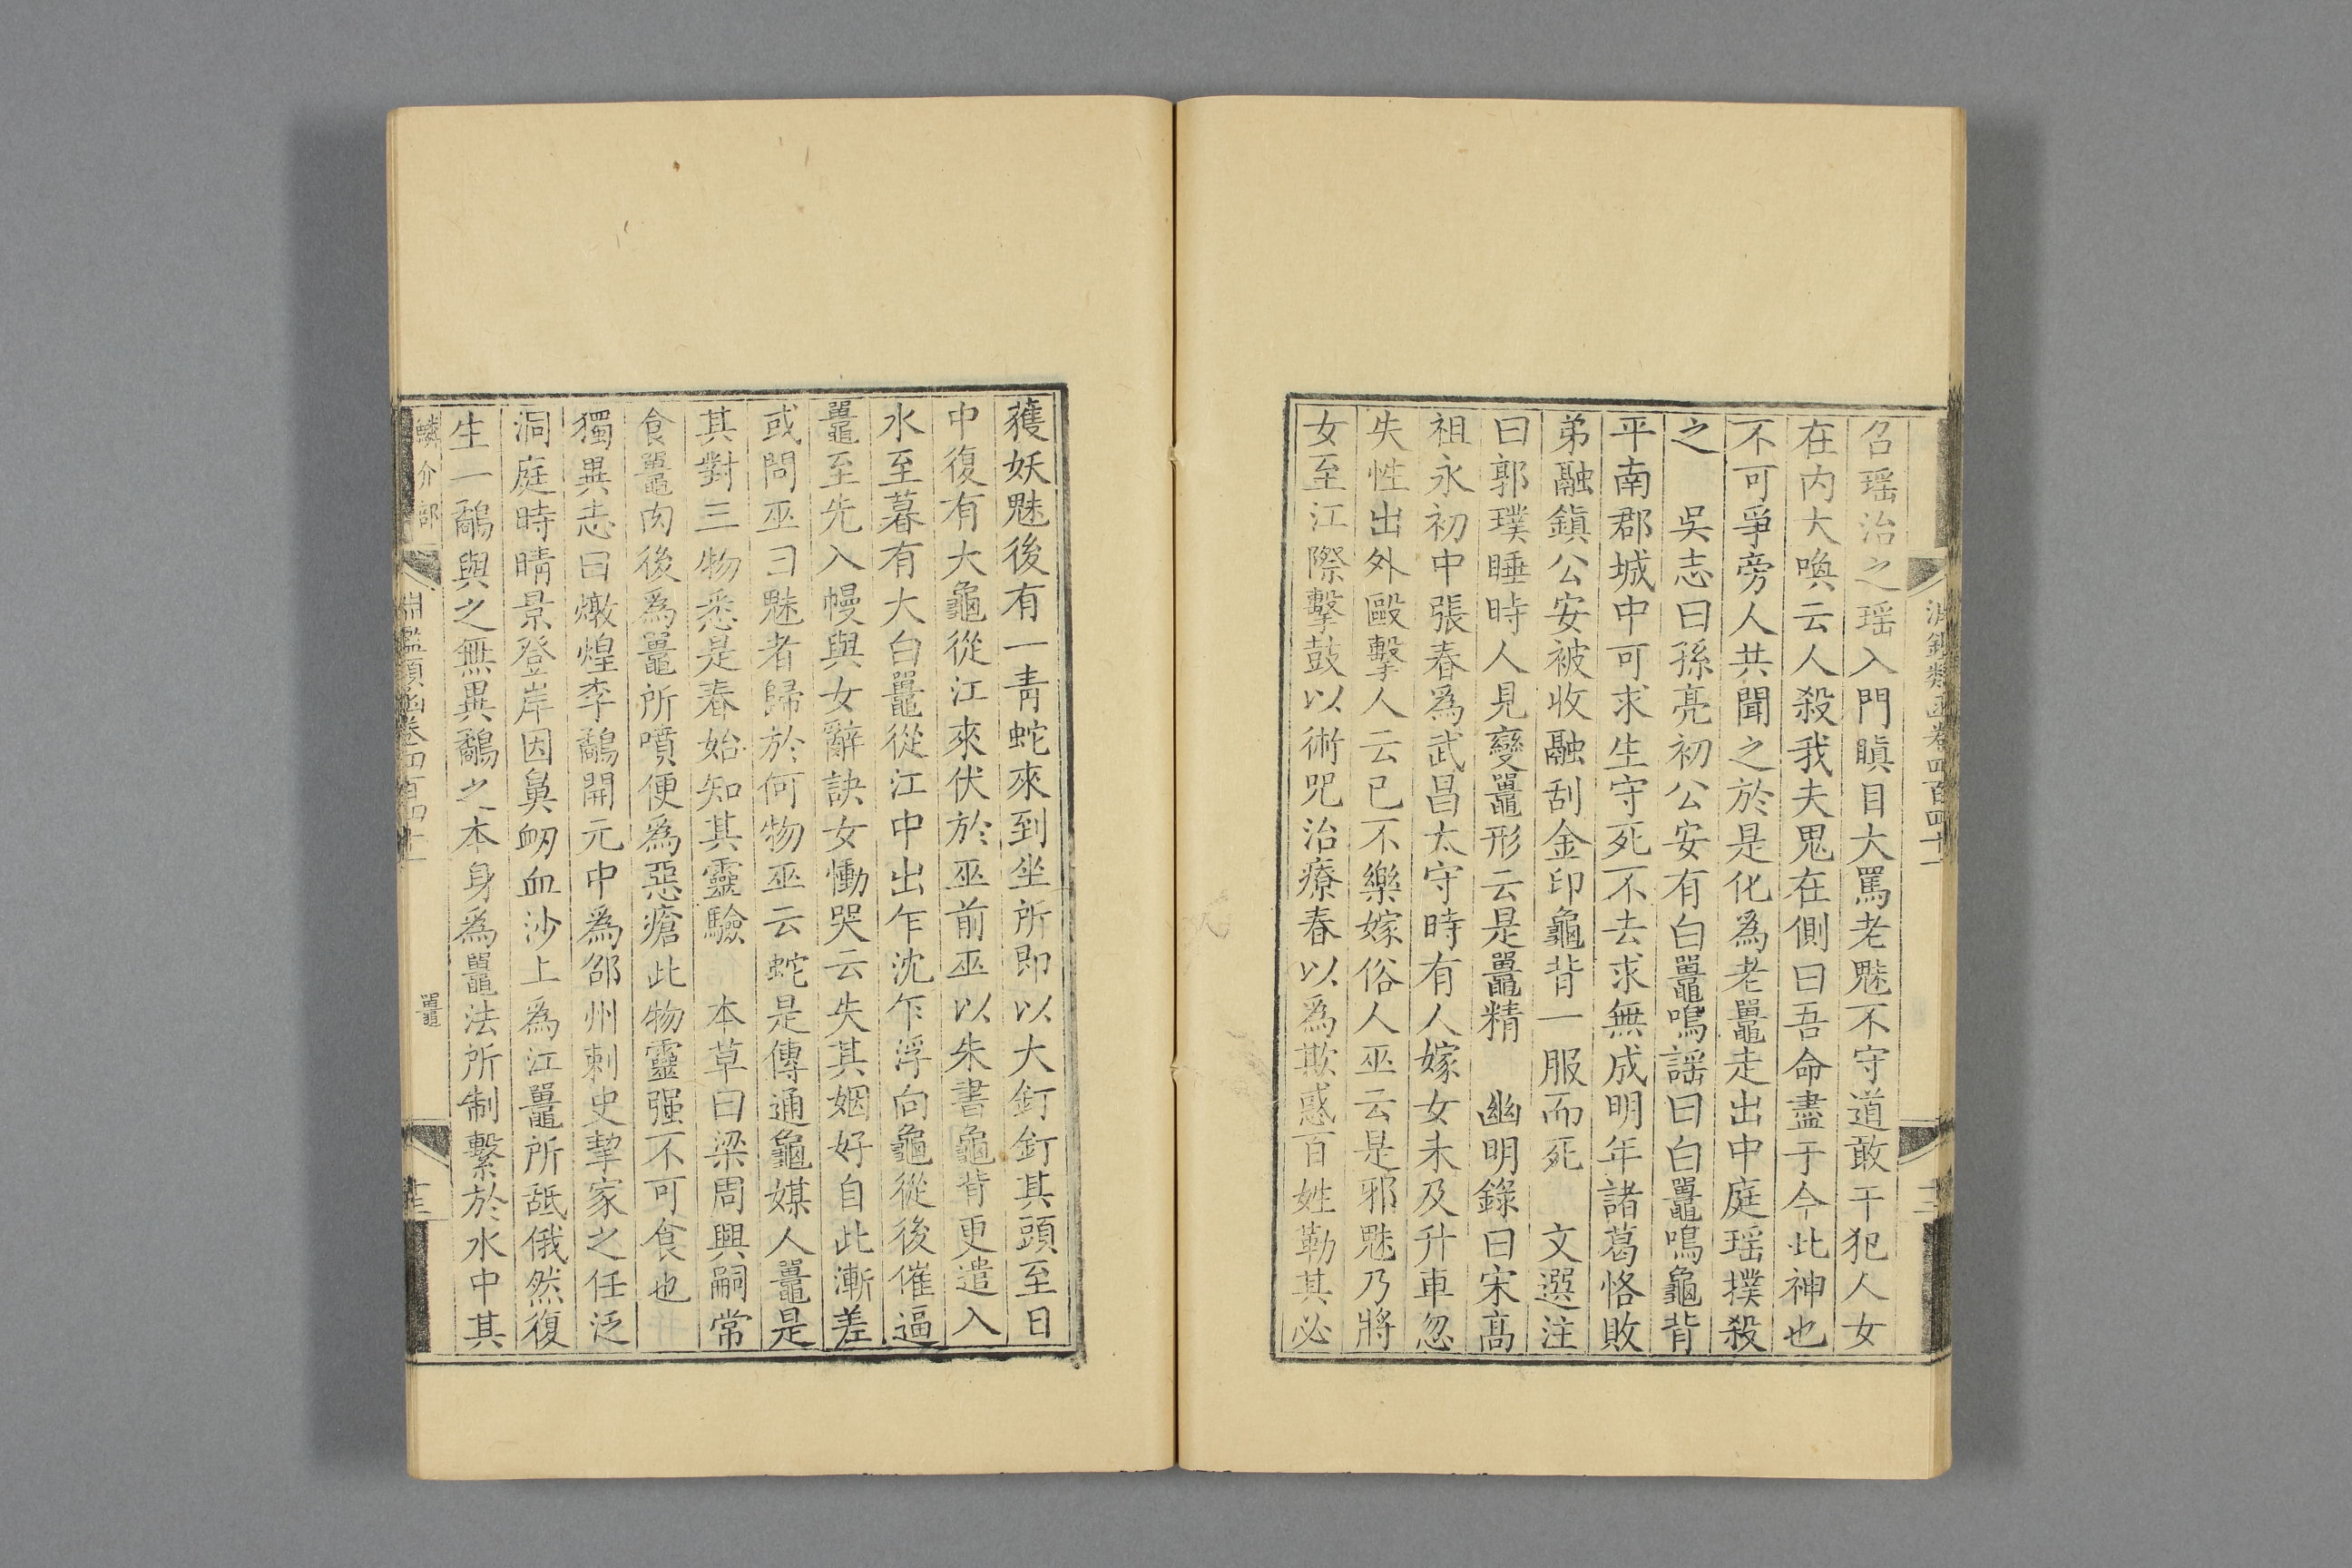 召瑶治之瑶入門瞋目大罵老魅不守道敢干犯人女
在内大喚云人殺我夫鬼在側曰吾命盡于今此神也
不可爭旁人共聞之於是化為老鼉走出中庭瑶撲殺
之　吳志曰孫亮初公安有白鼉鳴謡曰白鼉鳴龜背
平南郡城中可求生守死不去求無成明年諸葛恪敗
弟融鎭公安被收融刮金印龜背一服而死　文選注
曰郭璞睡時人見變鼉形云是鼉精　幽明錄曰宋髙
祖永初中張春爲武昌太守時有人嫁女未及升車忽
失性出外毆擊人云已不樂嫁俗人巫云是邪魅乃將
女至江際擊鼓以術咒治療春以爲欺惑百姓勒其必
淵鑑類函卷四百四十一
獲妖魅後有一青蛇來到坐所即以大釘釘其頭至日
中復有大龜從江來伏於巫前巫以朱書龜背更遣入
水至暮有大白鼉從江中出乍沈乍浮向龜從後催逼
鼉至先入幔與女辭訣女慟哭云失其姻好自此漸差
或問巫曰魅者歸於何物巫云蛇是傳通龜媒人鼉是
其對三物悉是春始知其靈驗　本草曰梁周興嗣常
食鼉肉後爲鼉所噴便爲惡瘡此物靈强不可食也
獨異志曰燉煌李鷸開元中爲邵州刺史挈家之任泛
洞庭時晴景登岸因鼻衂血沙上爲江鼉所舐俄然復
生一鷸與之無異鷸之本身爲鼉法所制繫於水中其
鱗介部
淵鑑類函卷四百四十一
鼉